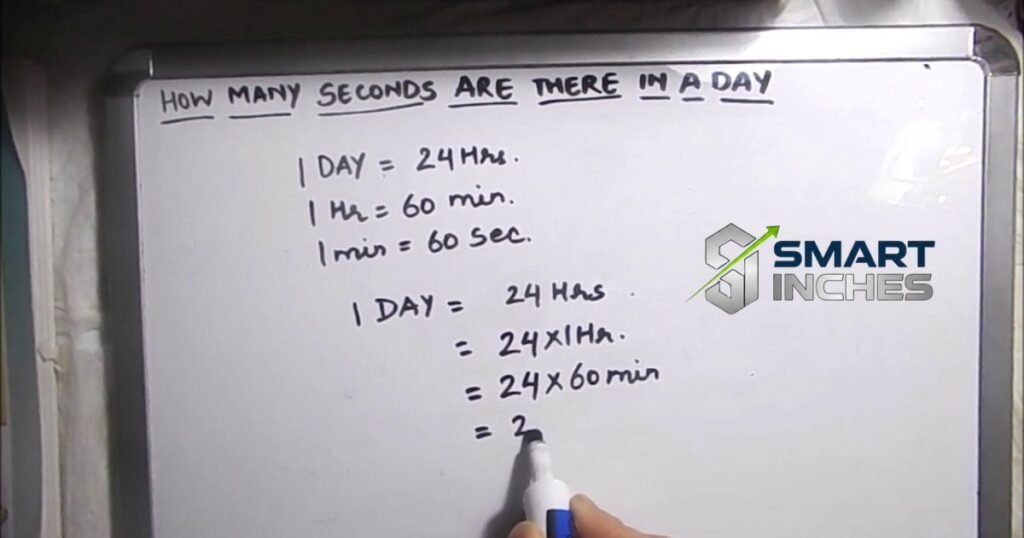 HOW MANY SECONDS ARE THERE IN A DAY
1 DAY = 24 Hrs.
1 Hr = 60 min.
1 min = 60 sec.
SMART
INCHES
1 DAY = 24 Hrs
= 24 x 1 Hr.
= 24 x 60 min
= 2